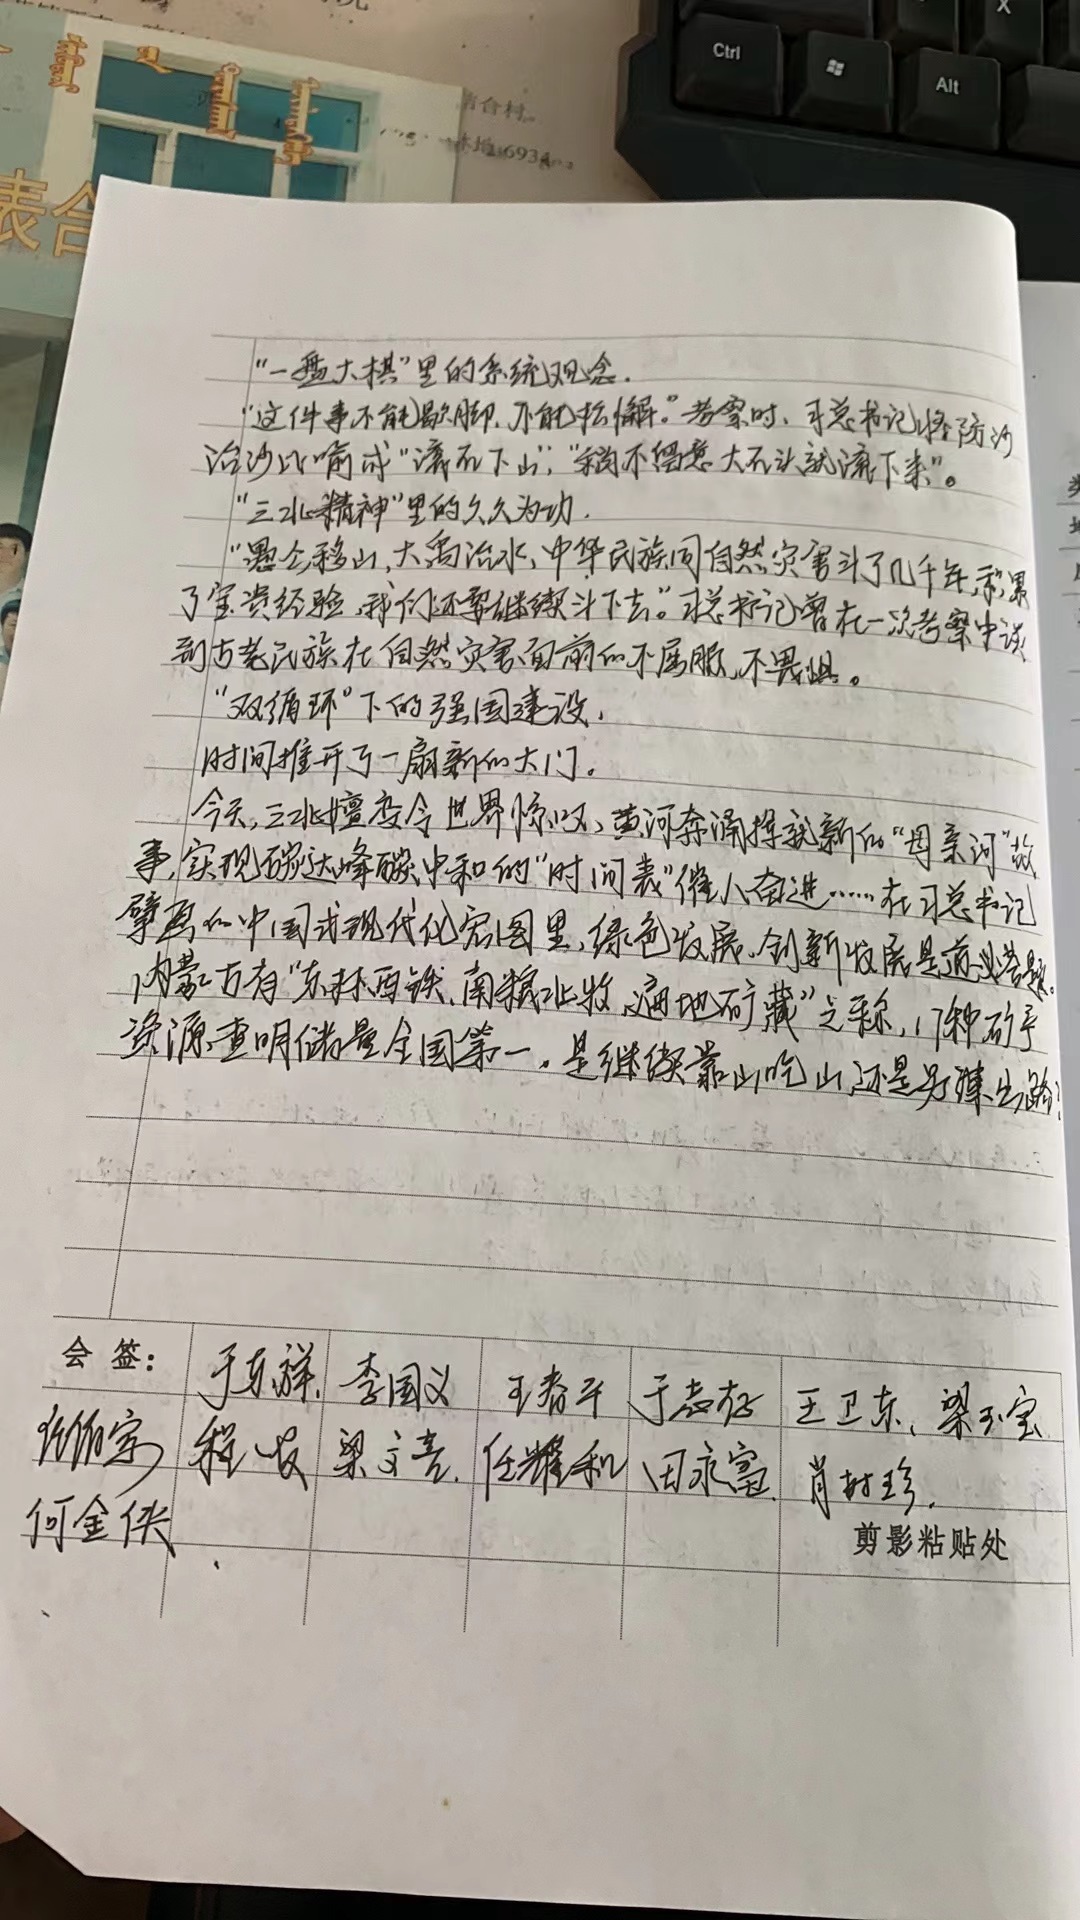 Ctrl
Alt
X
表合
肯合村。
林地6934
"一盘大棋"里的系统观念.
"这件事不能歇脚、不能松懈。"考察时、习总书记将防沙
治沙比喻成"滚石下山","稍不留意大石头就滚下来"。
"三北精神"里的久久为功.
"愚公移山,大禹治水,中华民族同自然灾害斗了几千年,积累
了宝贵经验,我们还要继续斗下去。"习总书记曾在一次考察中谈
到古老民族在自然灾害面前的不屈服,不畏惧。
"双循环"下的强国建设.
时间推开了一扇新的大门。
今天,三北嬗变令世界惊叹、黄河奔涌挥就新的"母亲河"故
事,实现碳达峰碳中和的"时间表"催人奋进……在习总书记
擘画的中国式现代化宏图里,绿色发展、创新发展是道必答题。
内蒙古有"东林西铁、南粮北牧、遍地矿藏"之称,17种矿产
资源查明储量全国第一。是继续靠山吃山,还是另辟出路?
会 签:
于东祥. 李国义 王春平 于志 王卫东、梁玉宝
程 梁文亮. 任耀和 田永富 肖树珍.
何金侠
剪影粘贴处